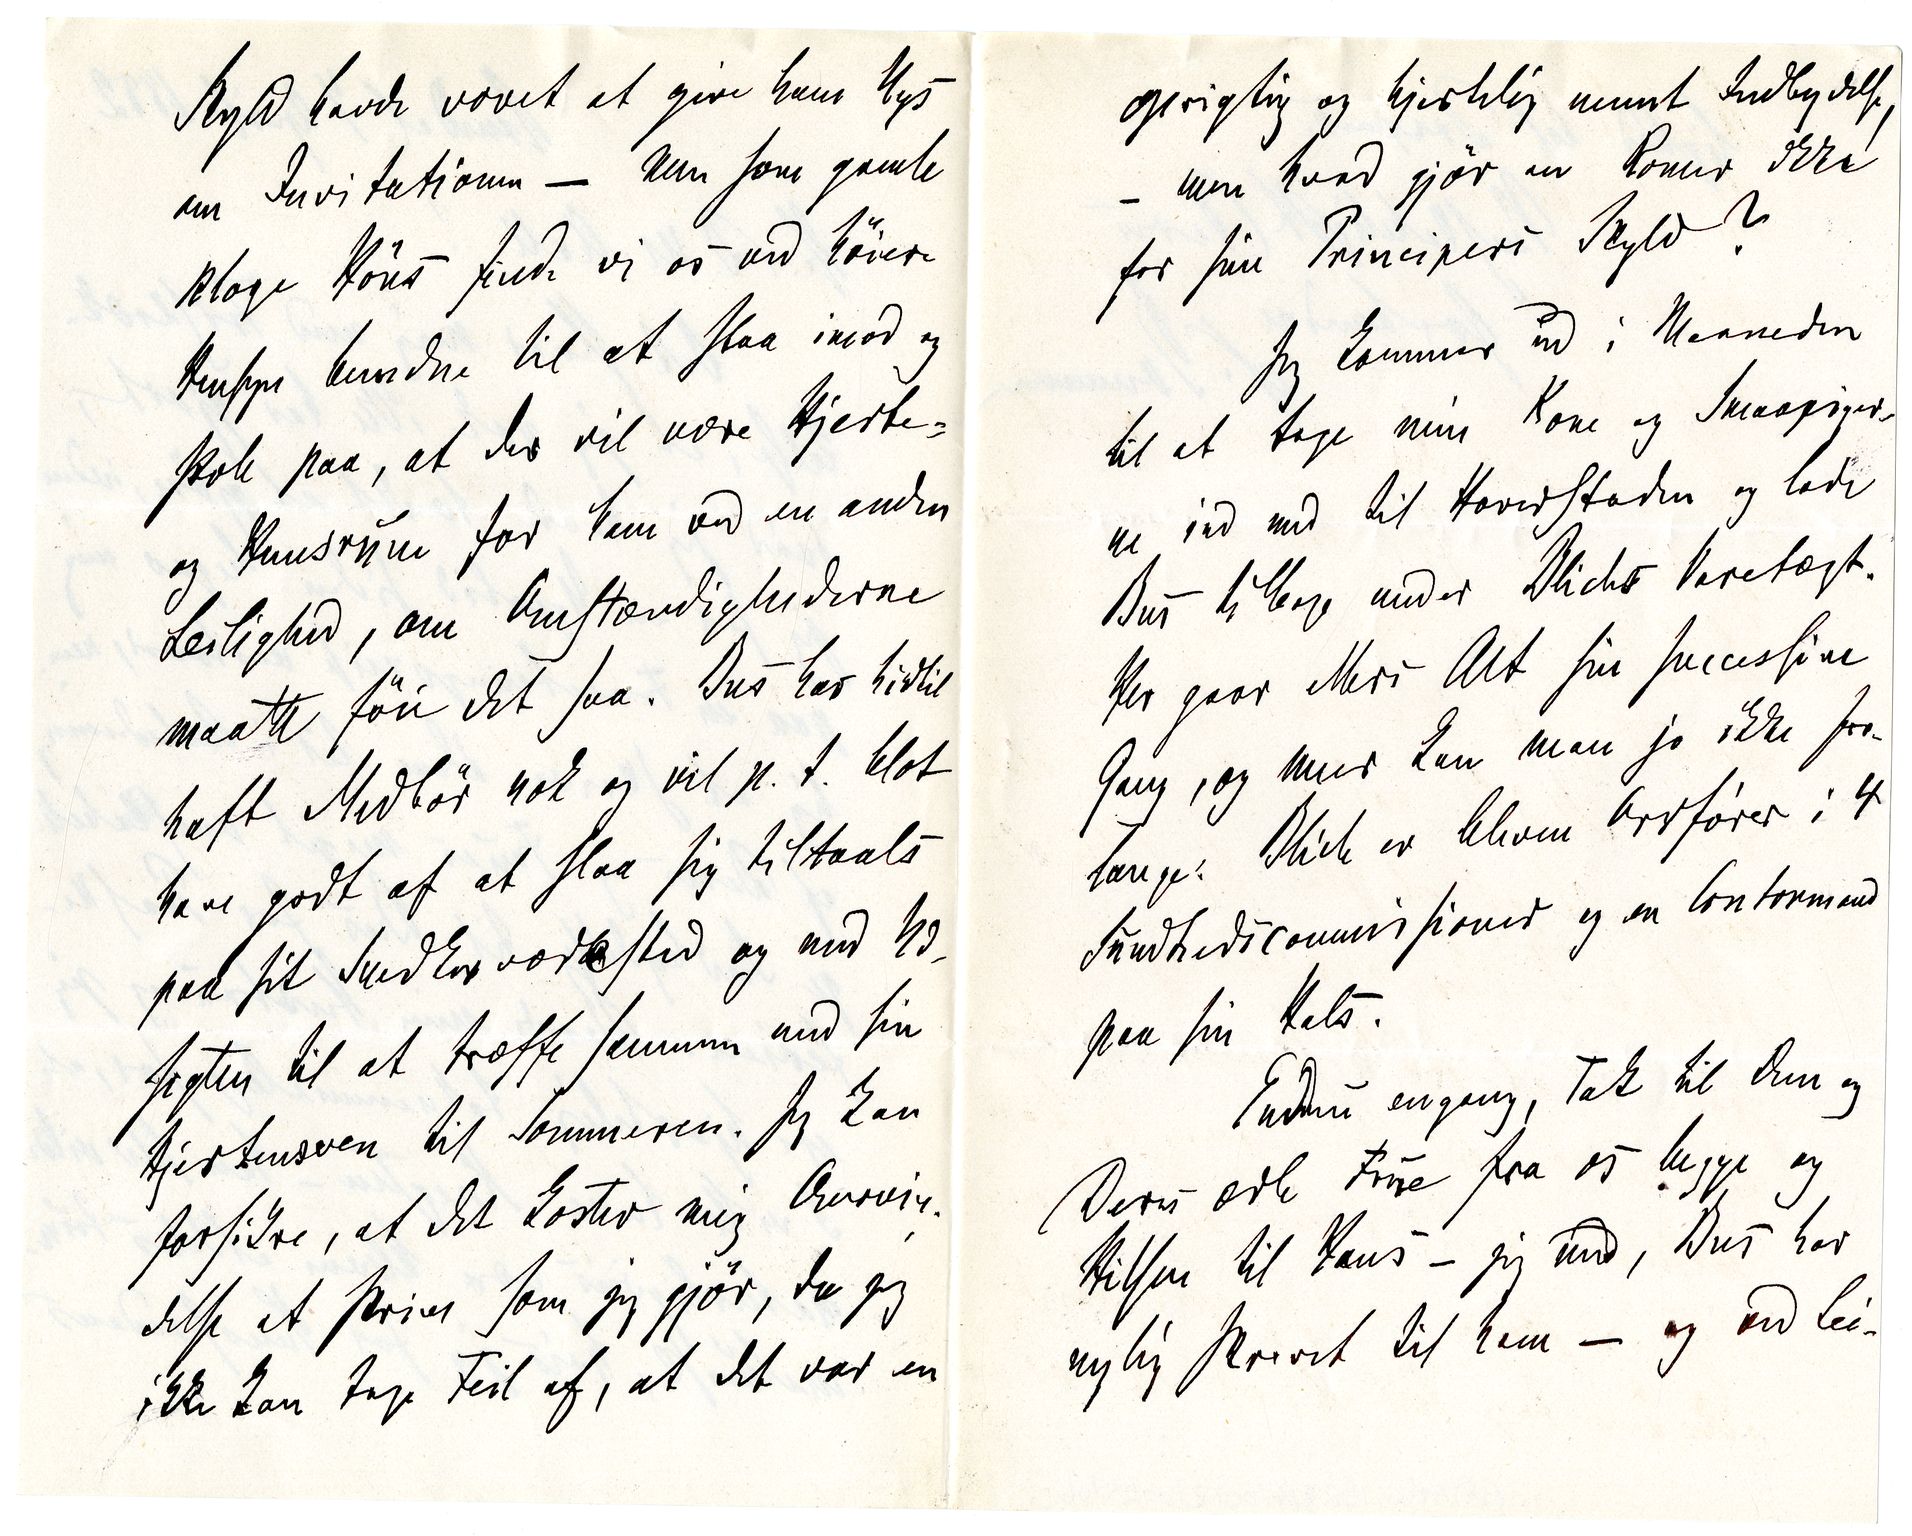 Skyld havde vovet at give ham Nys
om Invitationen — Men som gamle
kloge Höns finde vi os ved höiere
Hensyn bundne til at slaa imod og
stole paa, at der vil være Hjerte-
og Huusrum for ham ved en anden
Leilighed, om Omstændighederne
maatte föie det saa. Bus har hidtil
haft Medbör nok og vil p. t. blot
have godt af at slaa sig tiltaals
paa sit Snedkerværksted og med Ud-
sigten til at træffe sammen med sin
Hjertensven til Sommeren. Jeg kan
forsikre, at det koster mig Overvin-
delse at skrive som jeg gjör, da jeg
ikke kan tage Feil af, at det var en
oprigtig og hjertelig meent Indbydelse,
– men hvad gjör en Romer ikke
for sine Principers Skyld?
Jeg kommer ud i Maaneden
til at tage min Kone og Smaapiger-
ne ind med til Hovedstaden og lade
Bus tilbage under Blichs Varetægt.
Her gaar ellers Alt sin successive
Gang, og meer kan man jo ikke for-
lange. Blich er bleven Ordförer i 4
Sundhedscommissioner og en Contormand
paa sin Hals.
Endnu engang, Tak til Dem og
Deres ædle Frue fra os begge og
Hilsen til Hans – jeg veed, Bus har
nylig skrevet til ham — og ved Lei-